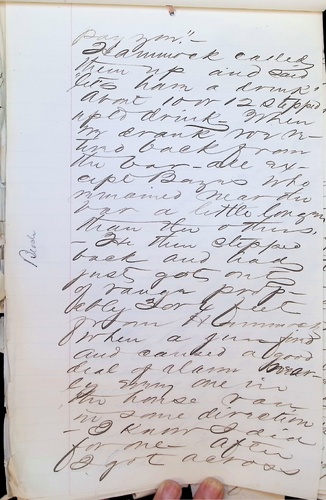 pay you."—
Hammock called
them up and said
"let's have a drink"
About 10 or 12 stepped
up to drink— When
we drank we re-
turned back from
the bar— all ex-
cept Bayus who
remained near the
bar a little longer
than the others.
— He then stepped
back and had
just got out
of range prob-
ably 3 or 4 feet
from Hammock
when a gun fired
and caused a good
deal of alarm. Near-
ly every one in
the house ran
in some direction
— I know I did
for one— After
I got across